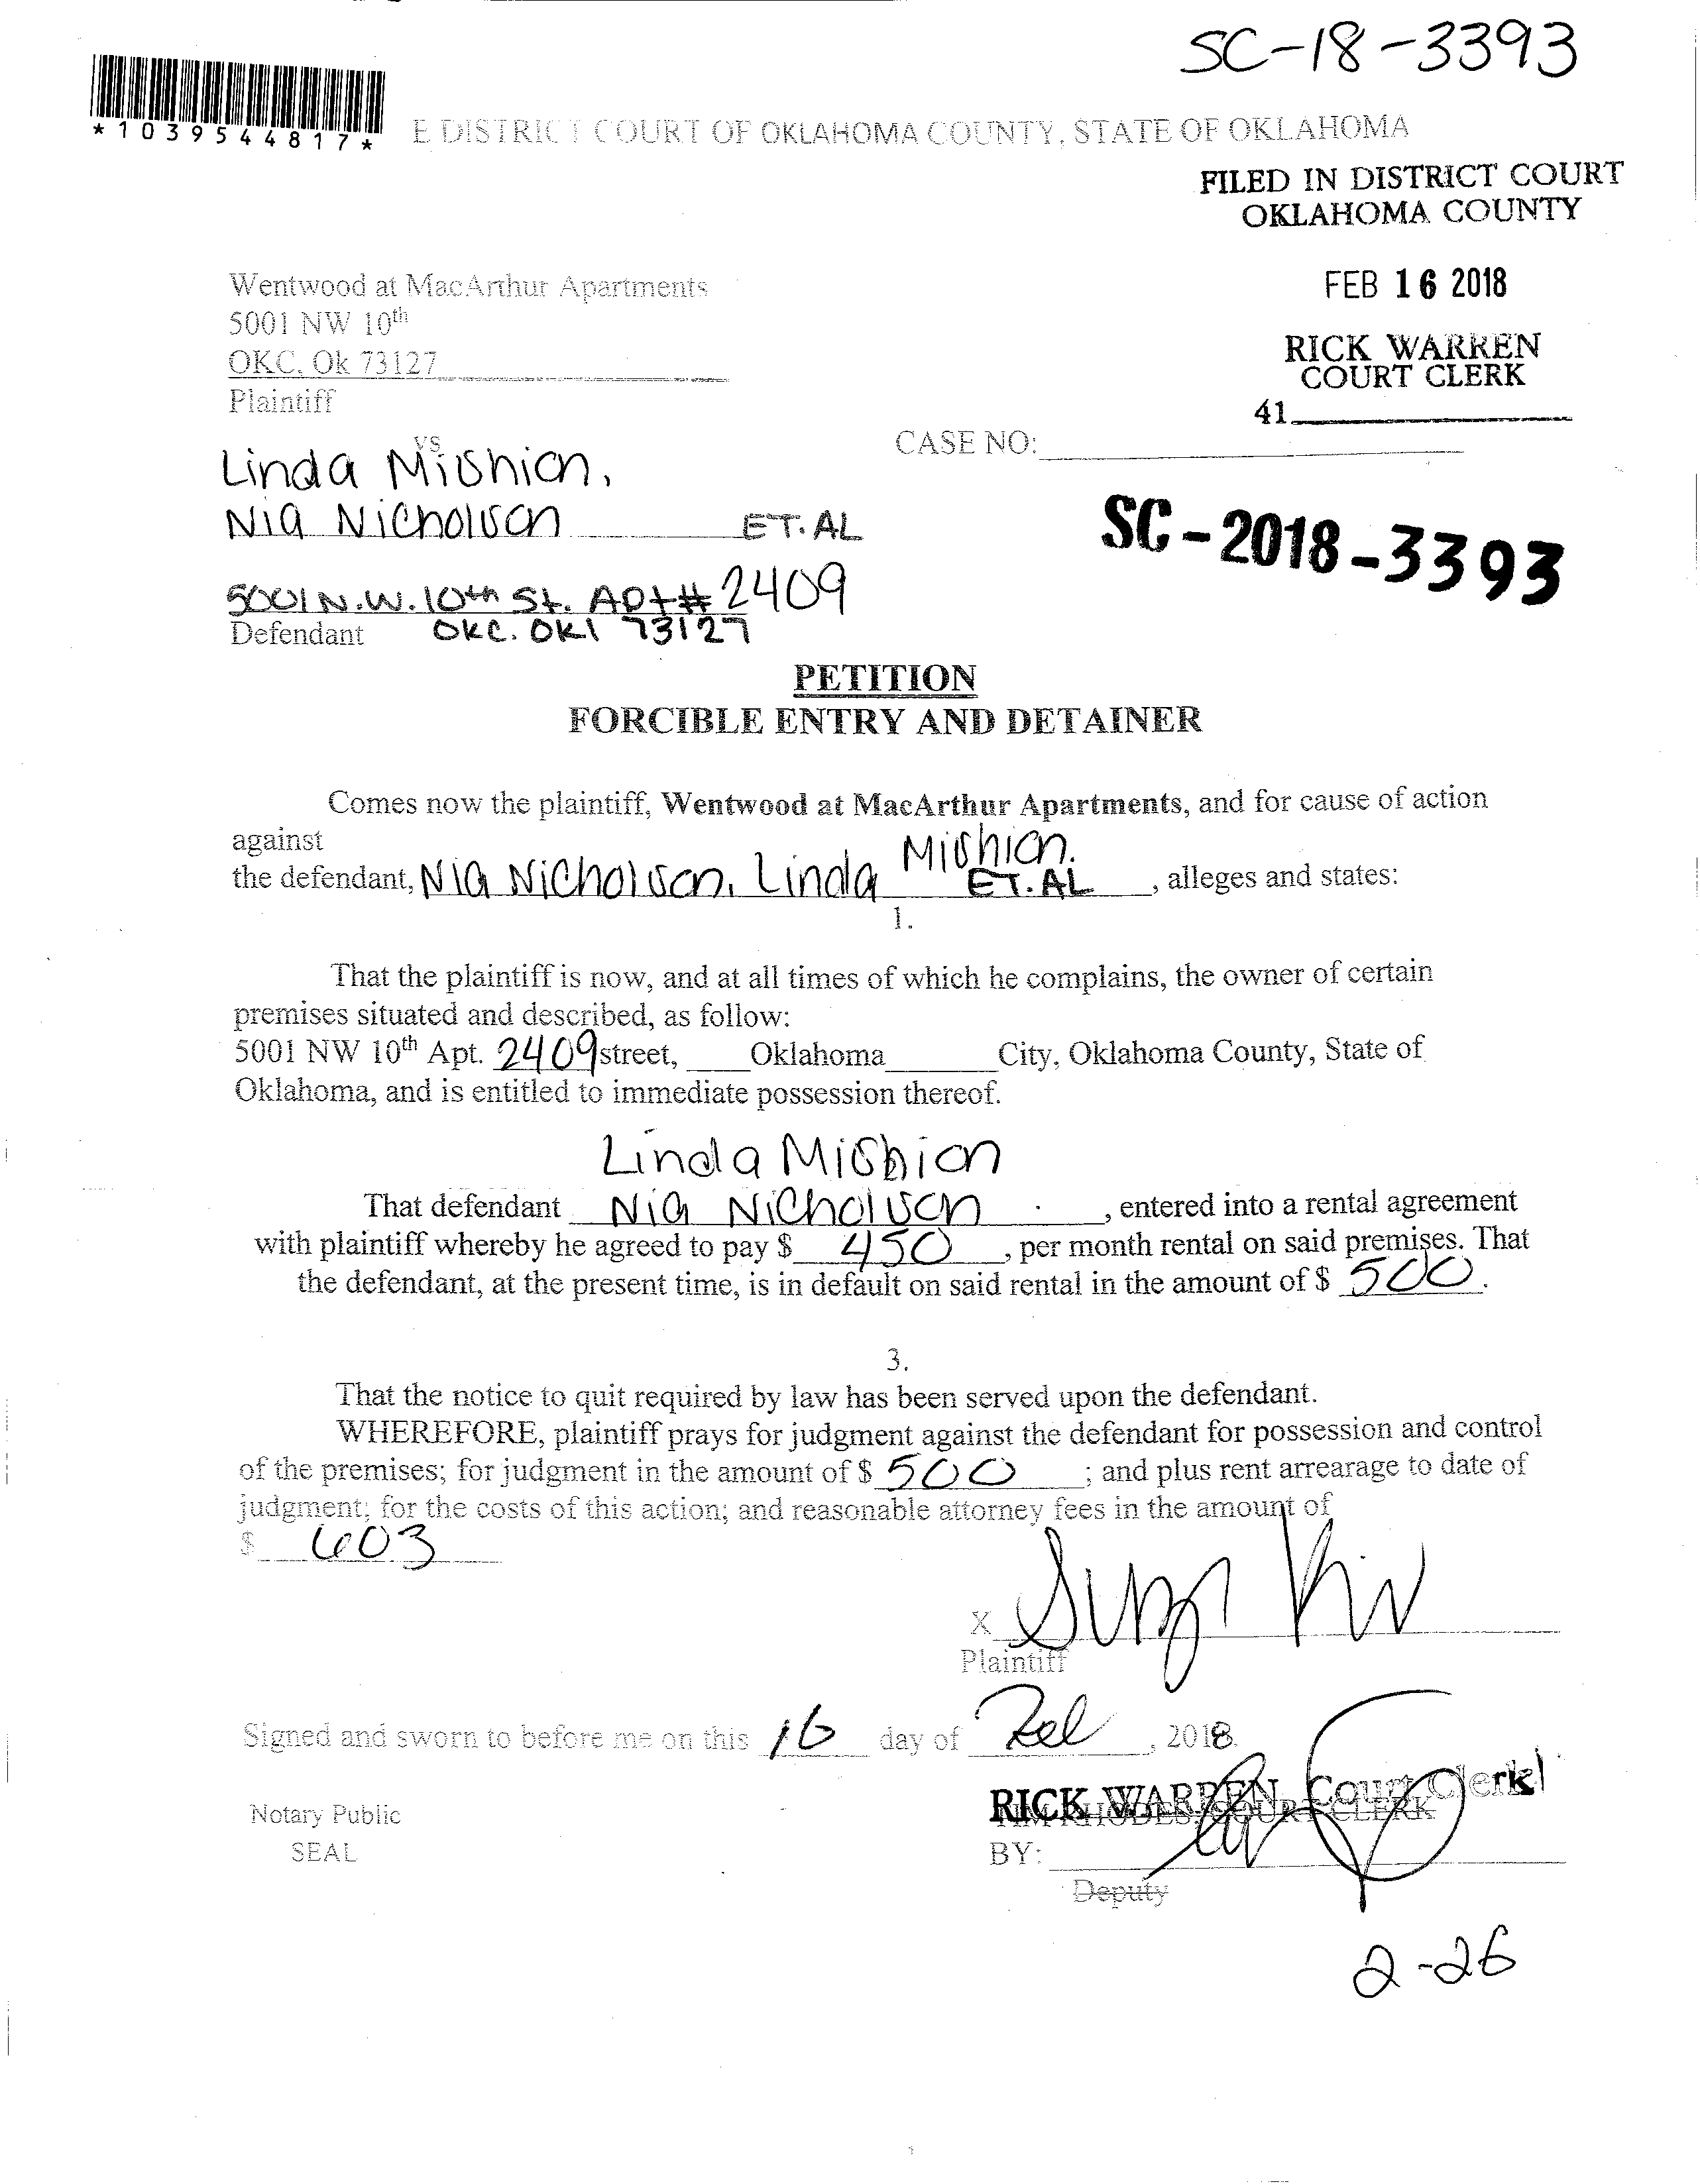 SC-18-3393
*1039544817*
E DISTRICT COURT OF OKLAHOMA COUNTY, STATE OF OKLAHOMA
FILED IN DISTRICT COURT
OKLAHOMA COUNTY
FEB 16 2018
RICK WARREN
COURT CLERK
41
Wentwood at MacArthur Apartments
5001 NW 10th
OKC, Ok 73127
Plaintiff
vs
CASE NO:
Linda Mishion,
Nia Nicholson ET.AL
SC-2018-3393
5001 N.W. 10th St. Apt# 2409
Defendant OKC. OKl 73127
PETITION
FORCIBLE ENTRY AND DETAINER
Comes now the plaintiff, Wentwood at MacArthur Apartments, and for cause of action
against
the defendant, Nia Nicholson, Linda Mishion. ET.AL , alleges and states:
1.
That the plaintiff is now, and at all times of which he complains, the owner of certain
premises situated and described, as follow:
5001 NW 10th Apt. 2409 street, Oklahoma City, Oklahoma County, State of
Oklahoma, and is entitled to immediate possession thereof.
Linda Mishion
That defendant Nia Nicholson , entered into a rental agreement
with plaintiff whereby he agreed to pay $ 450 , per month rental on said premises. That
the defendant, at the present time, is in default on said rental in the amount of $ 500.
3.
That the notice to quit required by law has been served upon the defendant.
WHEREFORE, plaintiff prays for judgment against the defendant for possession and control
of the premises; for judgment in the amount of $ 500 ; and plus rent arrearage to date of
judgment; for the costs of this action; and reasonable attorney fees in the amount of
$ 603
X
Plaintiff
Signed and sworn to before me on this 16 day of Feb , 2018.
RICK WARREN, Court Clerk
TIM RHODES, COURT CLERK
Notary Public
SEAL
BY:
Deputy
2-26